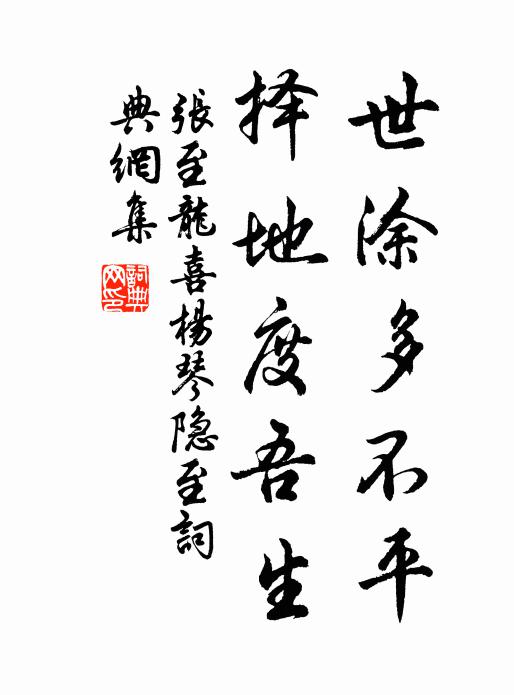 世涂多不平
择地度吾生
張至龍喜楊琴隐至詞
典網集
詞典網印